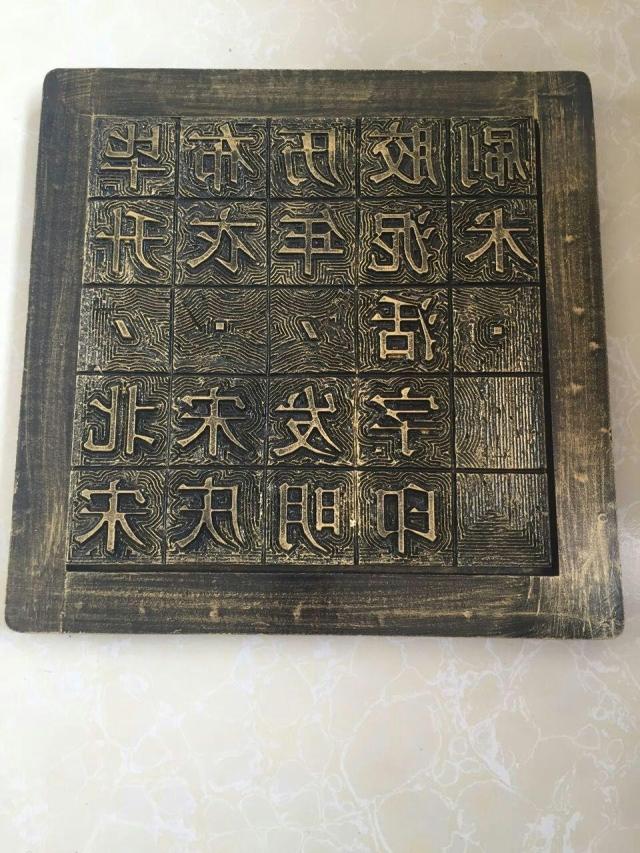 毕升，北宋
布衣。宋庆
历年，发明
胶泥活字印
刷术。